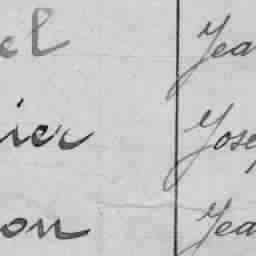 el Jea
ier Jose
on Jea